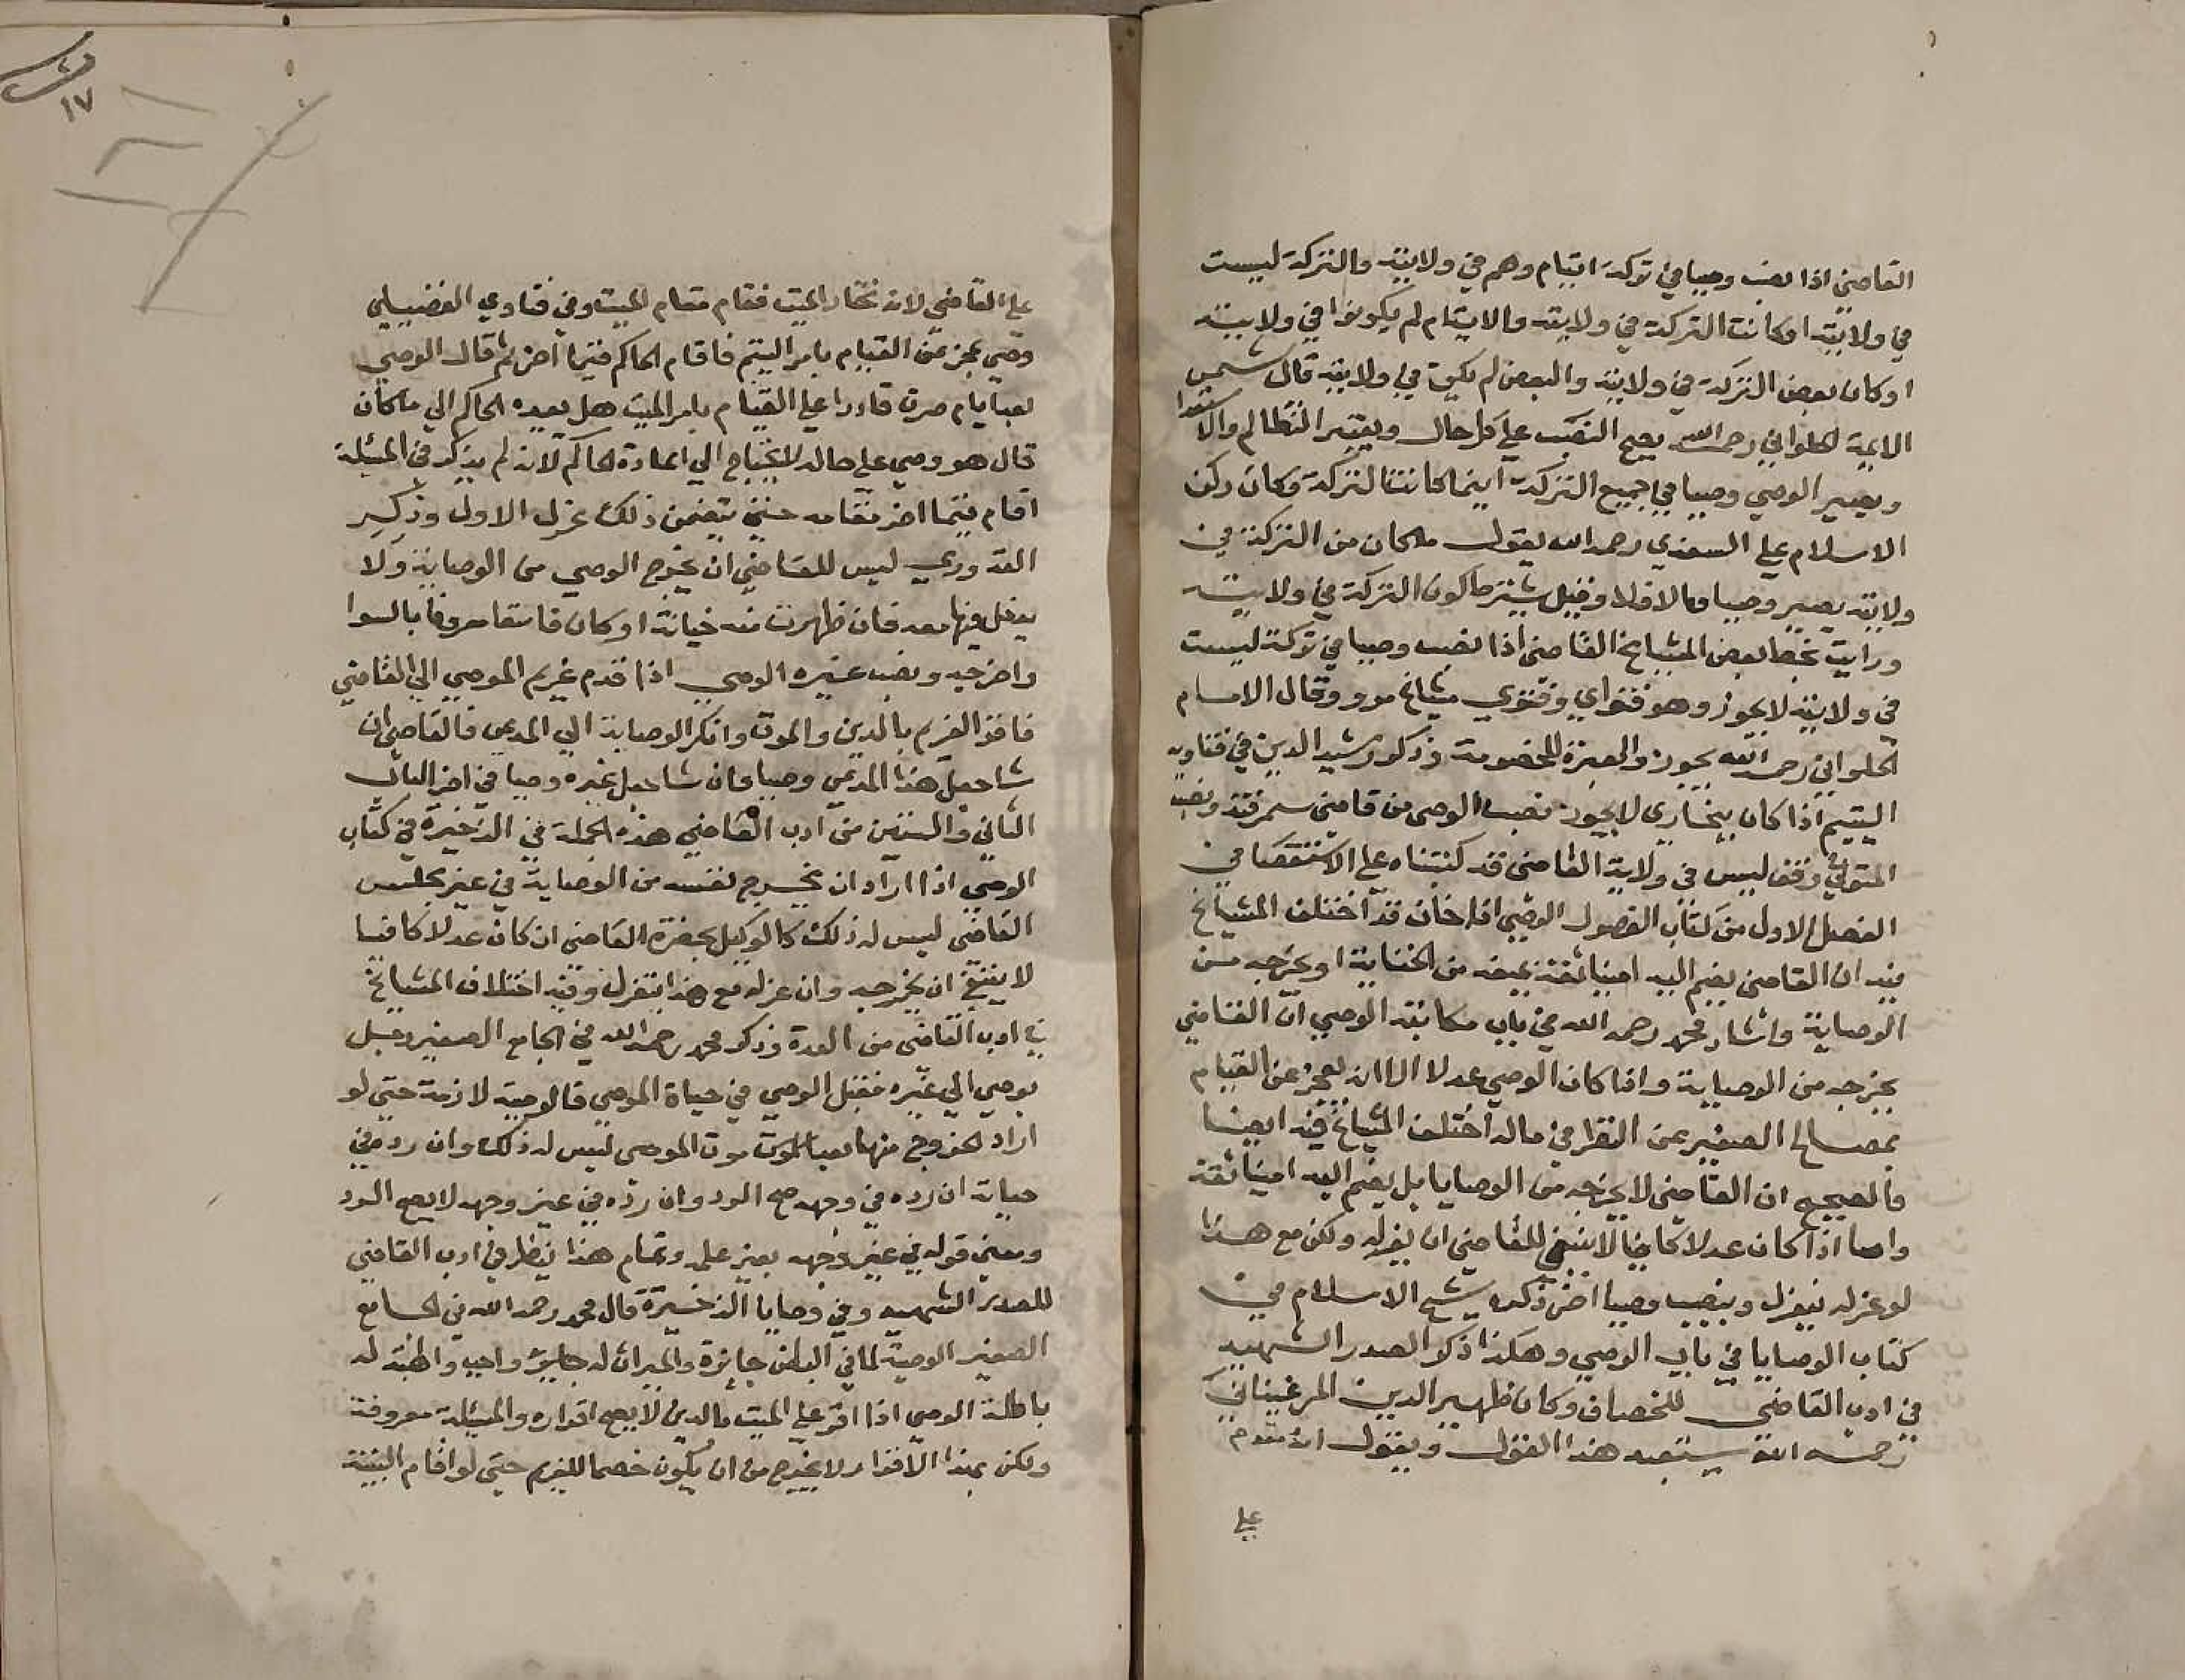 القاضي اذا نصب وصيا في تركة ايتام وهم في ولايته والتركة ليست
في ولايته او كانت التركة في ولايته والايتام لم يكونوا في ولايته
او كان بعض التركة في ولايته والبعض لم يكن في ولايته قال شمس
الايمة الحلواني رحمه الله يصح النصب على كل حال ويعتبر التظالم والاستعدا
ويصير الوصي وصيا في جميع التركة اينما كانت التركة وكان ركن
الاسلام علي السعدي رحمه الله يقول ما كان من التركة في
ولايته يصير وصيا وما لا فلا وقيل يشترط كون التركة في ولايته
ورايت بخط بعض المشايخ القاضي اذا نصب وصيا في تركة ليست
في ولايته لا يجوز وهو فتواي وفتوي مشايخ مرو وقال الامام
الحلواني رحمه الله يجوز والعبرة للخصومة وذكر رشيد الدين في فتاويه
اليتيم اذا كان ببخارى لا يجوز نصب الوصي من قاضي سمرقند ونصب
المتولي في وقف ليس في ولاية القاضي قد كتبناه على الاستقصا في
الفصل الاول من كتاب الفصول الوصي اذا خان قد اختلف المشايخ
فيه ان القاضي يضم اليه امينا ثقة يمنعه من الخيانة او يخرجه من
الوصاية واشار محمد رحمه الله في باب مكاتبة الوصي ان القاضي
يخرجه من الوصاية واذا كان الوصي عدلا الا انه يعجز عن القيام
بمصالح الصغير عن النظر في ماله اختلف المشايخ فيه ايضا
والصحيح ان القاضي لا يخرجه من الوصايا بل يضم اليه امينا ثقة
واما اذا كان عدلا كافيا لا ينبغي للقاضي ان يعزله ولكن مع هذا
لو عزله ينعزل وينصب وصيا اخر ذكره شيخ الاسلام في
كتاب الوصايا في باب الوصي وهكذا ذكر الصدر الشهيد
في ادب القاضي للخصاف وكان ظهير الدين المرغيناني
رحمه الله يستبعد هذا القول ويقول انه مقدم
على
على القاضي لانه مختار الميت فقام مقام الميت وفي فتاوي الفضيلي
وصي عجز عن القيام بامر اليتيم فاقام الحاكم قيما اخر ثم قال الوصي
بعد ايام صرت قادرا على القيام بامر الميت هل يعيده الحاكم الي ما كان
قال هو وصي على حاله لا يحتاج الي اعادة الحاكم لانه لم يذكر في المسئلة
اقام قيما اخر مقامه حتي يتضمن ذلك عزل الاول وذكر
القدوري ليس للقاضي ان يخرج الوصي من الوصاية ولا
يدخل فيها معه فان ظهرت منه خيانة او كان فاسقا معروفا بالسوا
واخرجه ونصب غيره الوصي اذا قدم غريم الموصي الي القاضي
فاقر الغريم بالدين والموت وانكر الوصاية الي المدعي فالقاضي ان
شا جعل هذا المدعي وصيا وان شا جعل غيره وصيا في اخر الباب
الثاني والستين من ادب القاضي هذه الجملة في الذخيرة في كتاب
الوصي اذا اراد ان يخرج نفسه من الوصاية في غير مجلس
القاضي ليس له ذلك كالوكيل بحضرة القاضي ان كان عدلا كافيا
لا ينبغي ان يخرجه وان عزله مع هذا انعزل وفيه اختلاف المشايخ
في ادب القاضي من العدة وذكر محمد رحمه الله في الجامع الصغير رجل
يوصي الي غيره فقبل الوصي في حياة الموصي فالوصية لازمة حتي لو
اراد الخروج منها بعد الموت موت الموصي ليس له ذلك وان رد في
حياته ان رده في وجهه صح الرد وان رده في غير وجهه لا يصح الرد
ومعني قوله في غير وجهه بغير علمه وتمام هذا ينظر في ادب القاضي
للصدر الشهيد وفي وصايا الذخيرة قال محمد رحمه الله في الجامع
الصغير الوصية لما في البطن جايزة والميراث له جايز واجب والهبة له
باطلة الوصي اذا اقر على الميت بالدين لا يصح اقراره والمسئلة معروفة
ولكن بهذا الاقرار لا يخرج من ان يكون خصما للغريم حتي لو اقام البينة